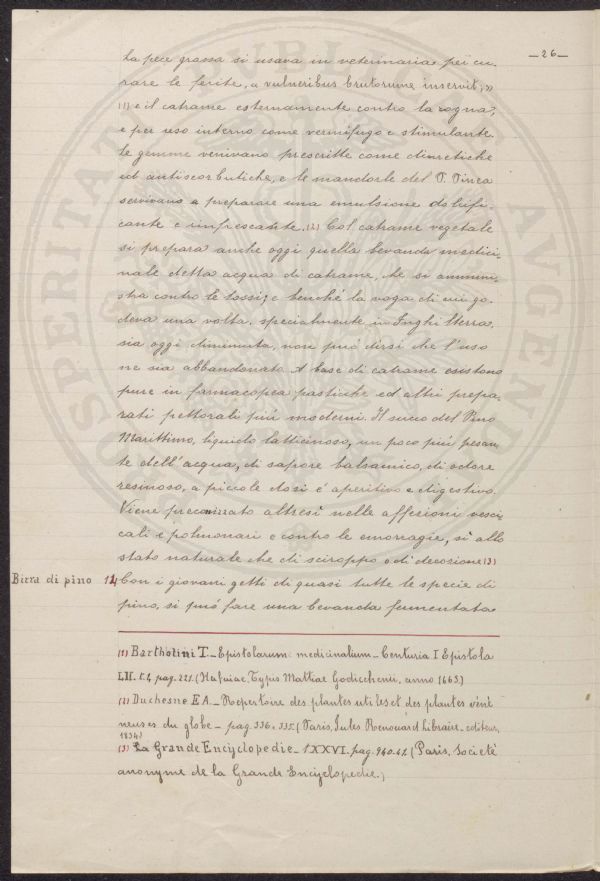 —26—
La pece grassa si usava in veterinaria per cu-
rare le ferite, « vulneribus brutorum inservit, »
(1) e il catrame esternamente contro la rogna,
e per uso interno come vermifugo e stimulante.
Le gemme venivano prescritte come diuretiche
ed antiscorbutiche, e le mandorle del P. Pinea
servivano a preparare una emulsione dolcifi-
cante e rinfrescante. (2) Col catrame vegetale
si prepara anche oggi quella bevanda medici-
nale detta acqua di catrame, che si ammini-
stra contro le tossi; e benché la voga di cui go-
deva una volta, specialmente in Inghilterra,
sia oggi diminuita, non può dirsi che l'uso
ne sia abbandonato. A base di catrame esistono
pure in farmacopea pastiche ed altri prepa-
rati pettorali più moderni. Il succo del Pino
Marittimo, liquido latticinoso, un poco più pesan-
te dell'acqua, di sapore balsamico, di odore
resinoso, a piccole dosi é aperitivo e digestivo.
Viene preconizzato altresì nelle affezioni vesci-
cali e polmonari e contro le emorragie, sì allo
stato naturale che di sciroppo o di decozione (3)
Birra di pino 14 Con i giovani getti di quasi tutte le specie di
pino, si può fare una bevanda fermentata
(1) Bartholini T. — Epistolarum medicinalium — Centuria I Epistola
LII. t. 1, pag. 221. (Hafniae, Typis Mattiae Godicchenii, anno 1663.)
(2) Duchesne E A. — Repertoire des plantes utiles et des plantes véné-
neuses du globe — pag. 336. 335. (Paris, Jules Renouard libraire-editeur,
1834)
(3) La Grande Encyclopedie — t. XXVI. pag. 940-41. (Paris, Societè
anonyme de la Grande Encyclopedie.)